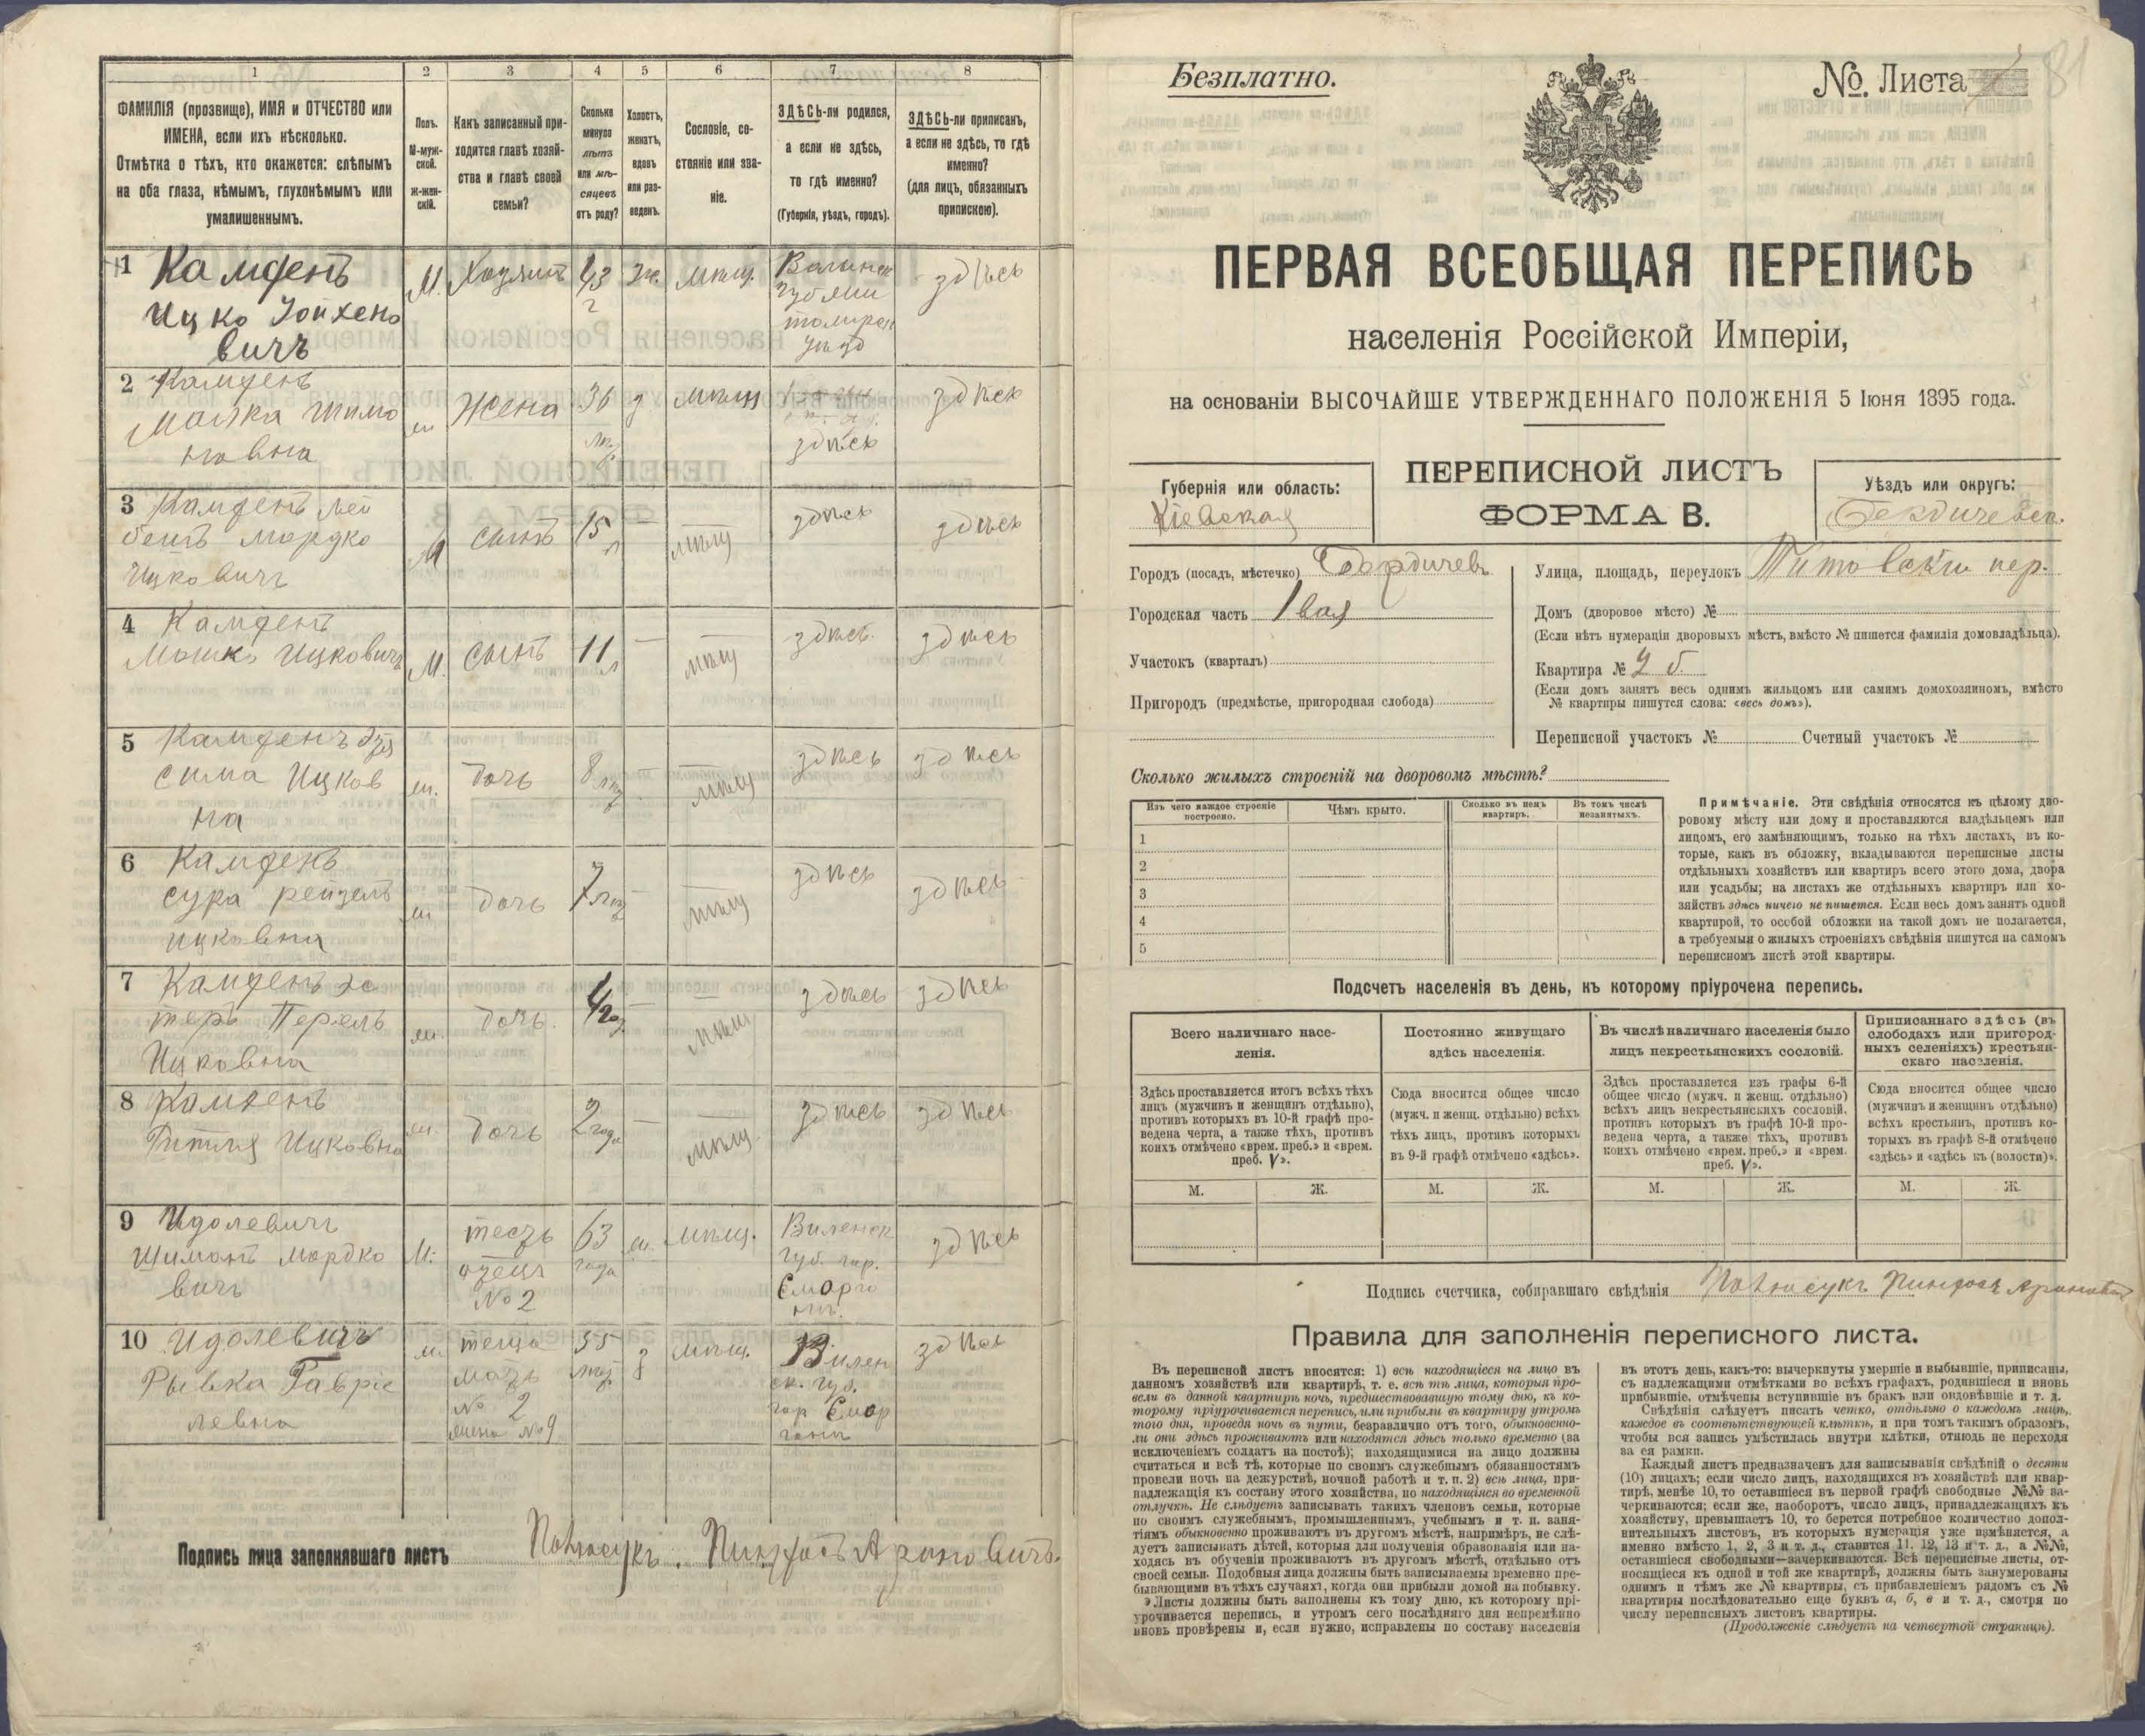 1 2 3 4 5 6 7 8
ФАМИЛІЯ (прозвище), ИМЯ и ОТЧЕСТВО или
ИМЕНА, если ихъ нѣсколько.
Отмѣтка о тѣхъ, кто окажется: слѣпымъ
на оба глаза, нѣмымъ, глухонѣмымъ или
умалишеннымъ.
Полъ.
М-муж-
ской.
Ж-жен-
скій.
Какъ записанный при-
ходится главѣ хозяй-
ства и главѣ своей
семьи?
Сколько
минуло
лѣтъ
или мѣ-
сяцевъ
отъ роду?
Холостъ,
женатъ,
вдовъ
или раз-
веденъ.
Сословіе, со-
стояніе или зва-
ніе.
ЗДѢСЬ-ли родился,
а если не здѣсь,
то гдѣ именно?
(Губернія, уѣздъ, городъ).
ЗДѢСЬ-ли приписанъ,
а если не здѣсь, то гдѣ
именно?
(для лицъ, обязанныхъ
припискою).
1 Камфенъ
Ицко
вичъ
М. Хозяинъ 43 ж. мѣщ.
Волынск
губ
уѣзд
здѣсь
2 Камфенъ
Малка Шимо
новна
Жена 36 мѣщ
здѣсь
здѣсь
3 Камфенъ Лей
бешъ Мордко
Ицковичъ
М сынъ 15 л — мѣщ здѣсь здѣсь
4 Камфенъ
Мошко Ицковичъ
М. сынъ 11 л — мѣщ здѣсь здѣсь
5 Камфенъ
сима Ицков
на
дочь 8 — мѣщ здѣсь здѣсь
6 Камфенъ
сура рейзель
ицковна
дочь 7 — мѣщ здѣсь здѣсь
7 Камфенъ эс
теръ Перель
Ицковна
дочь — мѣщ здѣсь здѣсь
8 Камфенъ
Гитля Ицковна
дочь 2 года — мѣщ здѣсь здѣсь
9 Идолевичъ
Шимонъ Мордко
вичъ
М. тесть
отецъ
№ 2
63
года
мѣщ.
Виленск
губ. гор.
Сморго
здѣсь
10 Идолевичъ
Рывка Гаврiе
левна
теща
мать
№ 2
жена №9
55
мѣщ.
Вилен
ск. губ.
гор Смор
гонь
здѣсь
Подпись лица заполнявшаго листъ Пинхосъ Ароновичъ.
Безплатно.
№. Листа
81
ПЕРВАЯ ВСЕОБЩАЯ ПЕРЕПИСЬ
населенія Россійской Имперіи,
на основаніи ВЫСОЧАЙШЕ УТВЕРЖДЕННАГО ПОЛОЖЕНІЯ 5 Іюня 1895 года.
ПЕРЕПИСНОЙ ЛИСТЪ
ФОРМА В.
Губернія или область:
Кіевская
Уѣздъ или округъ:
Бердичевск.
Городъ (посадъ, мѣстечко) Бердичевъ
Городская часть 1вая
Участокъ (кварталъ)
Пригородъ (предмѣстье, пригородная слобода)
Улица, площадь, переулокъ Титовскій пер.
Домъ (дворовое мѣсто) №
(Если нѣтъ нумераціи дворовыхъ мѣстъ, вмѣсто № пишется фамилія домовладѣльца).
Квартира № 2 б.
(Если домъ занятъ весь однимъ жильцомъ или самимъ домохозяиномъ, вмѣсто
№ квартиры пишутся слова: «весь домъ»).
Переписной участокъ № Счетный участокъ №
Сколько жилыхъ строеній на дворовомъ мѣстѣ?
Изъ чего каждое строеніе
построено.
Чѣмъ крыто.
Сколько въ немъ
квартиръ.
Въ томъ числѣ
незанятыхъ.
1
2
3
4
5
Примѣчаніе. Эти свѣдѣнія относятся къ цѣлому дво-
ровому мѣсту или дому и проставляются владѣльцемъ или
лицомъ, его замѣняющимъ, только на тѣхъ листахъ, въ ко-
торые, какъ въ обложку, вкладываются переписные листы
отдѣльныхъ хозяйствъ или квартиръ всего этого дома, двора
или усадьбы; на листахъ же отдѣльныхъ квартиръ или хо-
зяйствъ здѣсь ничего не пишется. Если весь домъ занятъ одной
квартирой, то особой обложки на такой домъ не полагается,
а требуемыя о жилыхъ строеніяхъ свѣдѣнія пишутся на самомъ
переписномъ листѣ этой квартиры.
Подсчетъ населенія въ день, къ которому пріурочена перепись.
Всего наличнаго насе-
ленія.
Постоянно живущаго
здѣсь населенія.
Въ числѣ наличнаго населенія было
лицъ некрестьянскихъ сословій.
Приписаннаго здѣсь (въ
слободахъ или пригород-
ныхъ селеніяхъ) крестьян-
скаго населенія.
Здѣсь проставляется итогъ всѣхъ тѣхъ
лицъ (мужчинъ и женщинъ отдѣльно),
противъ которыхъ въ 10-й графѣ про-
ведена черта, а также тѣхъ, противъ
коихъ отмѣчено «врем. преб.» и «врем.
преб. V».
Сюда вносится общее число
(мужч. и женщ. отдѣльно) всѣхъ
тѣхъ лицъ, противъ которыхъ
въ 9-й графѣ отмѣчено «здѣсь».
Здѣсь проставляется изъ графы 6-й
общее число (мужч. и женщ. отдѣльно)
всѣхъ лицъ некрестьянскихъ сословій,
противъ которыхъ въ графѣ 10-й про-
ведена черта, а также тѣхъ, противъ
коихъ отмѣчено «врем. преб.» и «врем.
преб. V».
Сюда вносится общее число
(мужчинъ и женщинъ отдѣльно)
всѣхъ крестьянъ, противъ ко-
торыхъ въ графѣ 8-й отмѣчено
«здѣсь» и «здѣсь къ (волости)».
М. Ж. М. Ж. М. Ж. М. Ж.
Подпись счетчика, собиравшаго свѣдѣнія Пинхосъ Ароновичъ
Правила для заполненія переписного листа.
Въ переписной листъ вносятся: 1) всѣ находящіеся на лицо въ
данномъ хозяйствѣ или квартирѣ, т. е. всѣ тѣ лица, которыя про-
вели въ данной квартирѣ ночь, предшествовавшую тому дню, къ ко-
торому пріурочивается перепись, или прибыли въ квартиру утромъ
того дня, проведя ночь въ пути, безразлично отъ того, обыкновенно-
ли они здѣсь проживаютъ или находятся здѣсь только временно (за
исключеніемъ солдатъ на постоѣ); находящимися на лицо должны
считаться и всѣ тѣ, которые по своимъ служебнымъ обязанностямъ
провели ночь на дежурствѣ, ночной работѣ и т. п. 2) всѣ лица, при-
надлежащія къ составу этого хозяйства, но находящіяся во временной
отлучкѣ. Не слѣдуетъ записывать такихъ членовъ семьи, которые
по своимъ служебнымъ, промышленнымъ, учебнымъ и т. п. заня-
тіямъ обыкновенно проживаютъ въ другомъ мѣстѣ, напримѣръ, не слѣ-
дуетъ записывать дѣтей, которыя для полученія образованія или на-
ходясь въ обученіи проживаютъ въ другомъ мѣстѣ, отдѣльно отъ
своей семьи. Подобныя лица должны быть записываемы временно пре-
бывающими въ тѣхъ случаяхъ, когда они прибыли домой на побывку.
Листы должны быть заполнены къ тому дню, къ которому прі-
урочивается перепись, и утромъ сего послѣдняго дня непремѣнно
вновь провѣрены и, если нужно, исправлены по составу населенія
въ этотъ день, какъ-то: вычеркнуты умершіе и выбывшіе, приписаны,
съ надлежащими отмѣтками во всѣхъ графахъ, родившіеся и вновь
прибывшіе, отмѣчены вступившіе въ бракъ или овдовѣвшіе и т. д.
Свѣдѣнія слѣдуетъ писать четко, отдѣльно о каждомъ лицѣ,
каждое въ соотвѣтствующей клѣткѣ, и при томъ такимъ образомъ,
чтобы вся запись умѣстилась внутри клѣтки, отнюдь не переходя
за ея рамки.
Каждый листъ предназначенъ для записыванія свѣдѣній о десяти
(10) лицахъ; если число лицъ, находящихся въ хозяйствѣ или квар-
тирѣ, менѣе 10, то оставшіеся въ первой графѣ свободные №№ за-
черкиваются; если же, наоборотъ, число лицъ, принадлежащихъ къ
хозяйству, превышаетъ 10, то берется потребное количество допол-
нительныхъ листовъ, въ которыхъ нумерація уже измѣняется, а
именно вмѣсто 1, 2, 3 и т. д., ставится 11. 12, 13 и т. д., а №№,
оставшіеся свободными—зачеркиваются. Всѣ переписные листы, от-
носящіеся къ одной и той же квартирѣ, должны быть занумерованы
однимъ и тѣмъ же № квартиры, съ прибавленіемъ рядомъ съ №
квартиры послѣдовательно еще буквъ а, б, в и т. д., смотря по
числу переписныхъ листовъ квартиры.
(Продолженіе слѣдуетъ на четвертой страницѣ).